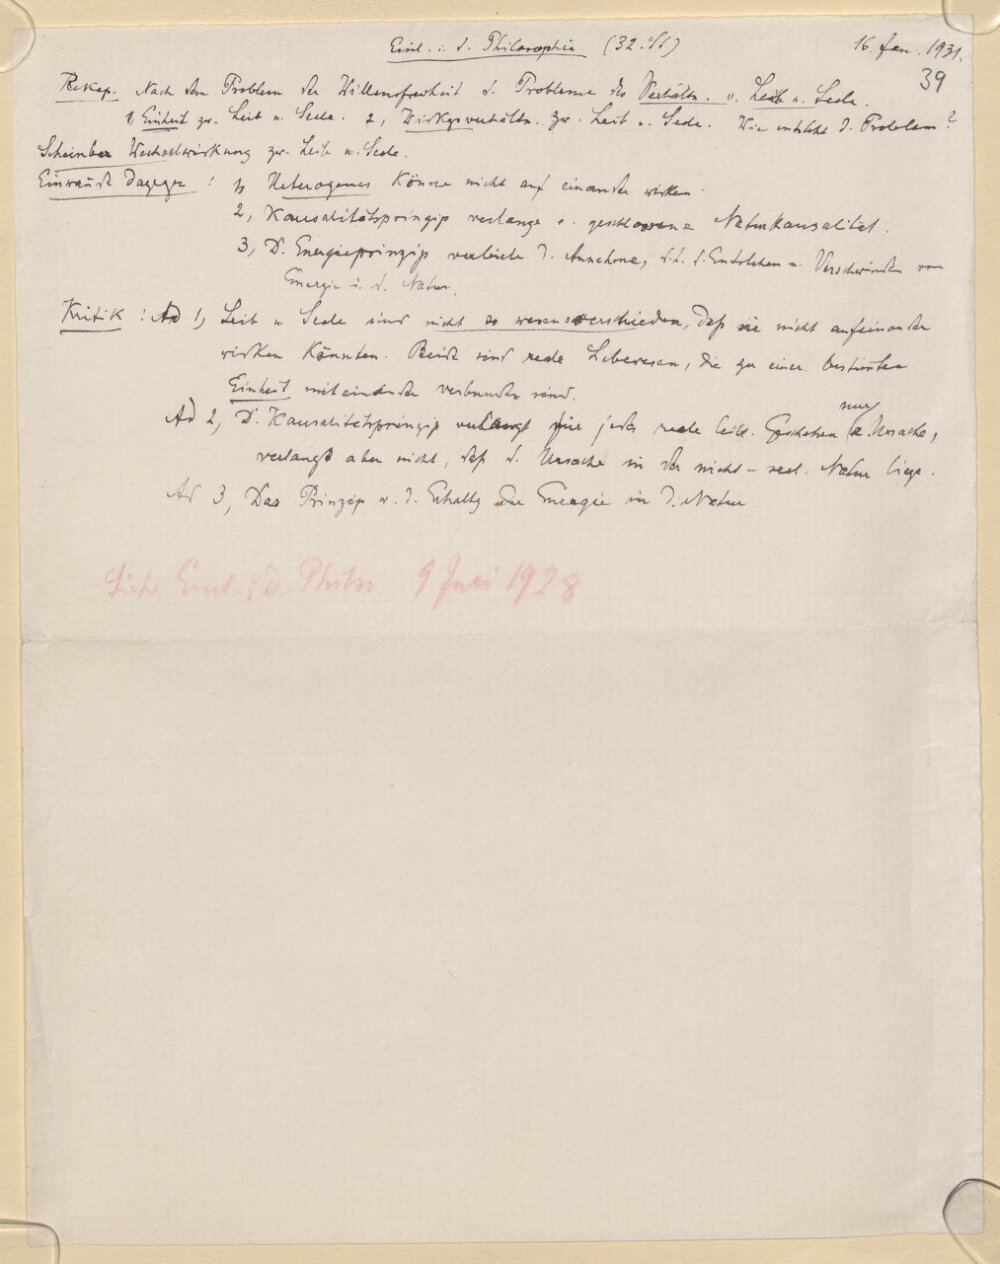 Einl. i. d. Philosophie (32. St) 16. Jan. 1931.
39
Rekap. Nach dem Problem der Willensfreiheit d. Probleme des Verhältn. v. Leib u. Seele.
1, Einheit zw. Leib u. Seele. 2, Wirkgsverhältn. zw. Leib u. Seele. Wie entsteht d. Problem?
Scheinbar Wechselwirkung zw. Leib u. Seele.
Einwände dagegen: 1, Heterogenes könne nicht auf einander wirken.
2, Kausalitätsprinzip verlange e. geschlossene Naturkausalität.
3, D. Energieprinzip verbiete d. Annahme, d.h. d. Entstehen u. Verschwinden von
Energie i. d. Natur.
Kritik: Ad 1, Leib u Seele sind nicht so wesensverschieden, daß sie nicht aufeinander
wirken könnten. Beide sind reale Lebewesen, die zu einer bestimmten
Einheit miteinander verbunden sind.
nur
Ad 2, D. Kausalitätsprinzip verlangt für jedes reale Geschehen e. Ursache,
verlangt aber nicht, daß d. Ursache in der nicht-seel. Natur liege.
Ad 3, Das Prinzip v. d. Erhaltg der Energie in d. Natur
Siehe Einl. i. d. Philos. 9 Juli 1928